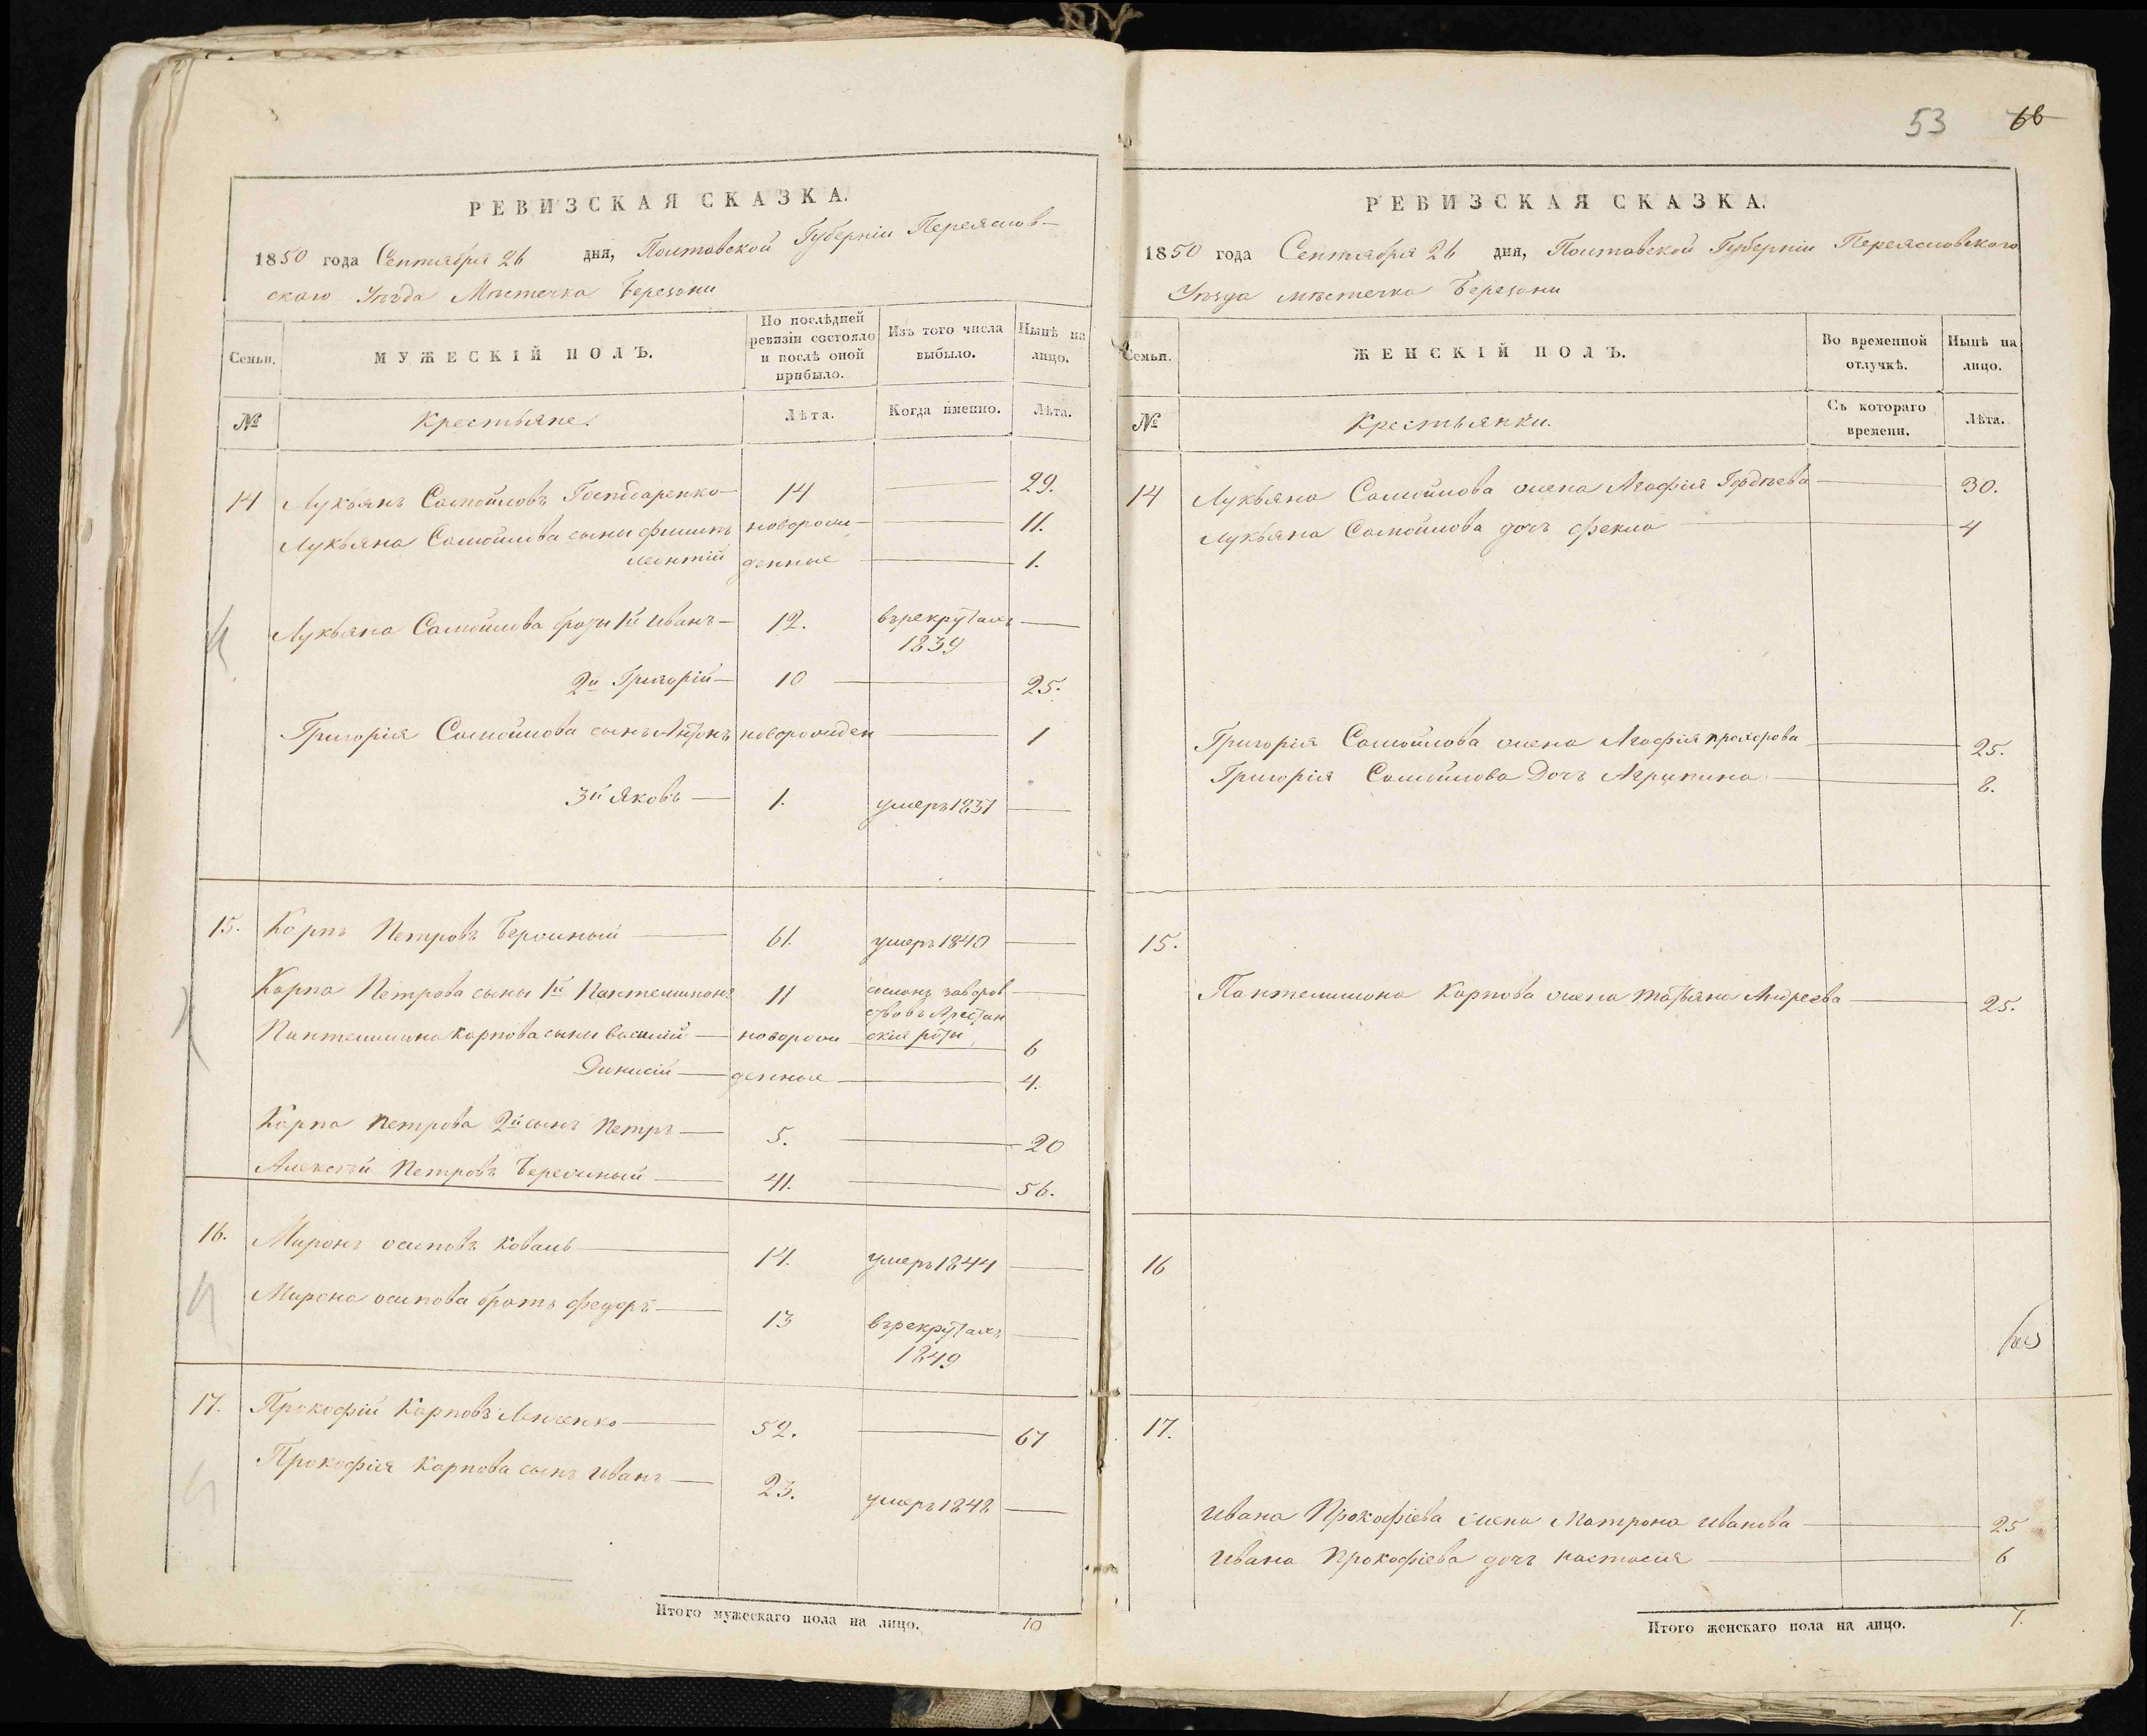 53 66
РЕВИЗСКАЯ СКАЗКА.
1850 года Сентября 26 дня, Полтавской Губерніи Переяслов-
скаго Уѣзда Мѣстечка Березани
Семьи.
МУЖЕСКІЙ ПОЛЪ.
По послѣдней ревизіи состояло и послѣ оной прибыло.
Изъ того числа выбыло.
Нынѣ на лицо.
№
Крестьяне.
Лѣта.
Когда именно.
Лѣта.
14 Лукьянъ Самойловъ 14 29.
Лукьяна Самойлова сыны Филипъ новорож- 11.
Леонтій денные 1.
Лукьяна Самойлова браты 1й Иванъ 12. въ рекрутахъ
1839
2й Григорій 10 25.
Григорія Самойлова сынъ Антонъ новорожден 1
3й Яковъ 1. умеръ 1837
15. Карпъ Петровъ Бережный 61. умеръ 1840
Карпа Петрова сыны 1й Пантелимонъ 11 сосланъ за воров
ство въ Арестан
Пантелимона Карпова сыны Василий новорож скія роты 6
Дионисій денные 4.
Карпа Петрова 2й сынъ Петръ 5. 20
Алексѣй Петровъ Бережный 41. 56.
16. Миронъ Осиповъ Коваль 14. умеръ 1844
Мирона Осипова братъ Федоръ 13 въ рекрутахъ
1849
17. Прокофій Карповъ 52. 67
Прокофія Карпова сынъ Иванъ 23. умеръ 1848
Итого мужескаго пола на лицо. 10
РЕВИЗСКАЯ СКАЗКА.
1850 года Сентября 26 дня, Полтавской Губерніи Переясловскаго
Уѣзда мѣстечка Березани
Семьи.
ЖЕНСКІЙ ПОЛЪ.
Во временной отлучкѣ.
Нынѣ на лицо.
№
Крестьянки.
Съ котораго времени.
Лѣта.
14 Лукьяна Самойлова жена Агафія Гордѣева 30.
Лукьяна Самойлова дочь Фекла 4
Григорія Самойлова жена Агафія Прохорова 25.
Григорія Самойлова Дочь Агрипина 8.
15.
Пантелимона Карпова жена Татьяна Андреева 25.
16
17.
Ивана Прокофіева жена Матрона Иванова 25
Ивана Прокофіева дочь Настасія 6
Итого женскаго пола на лицо. 7.